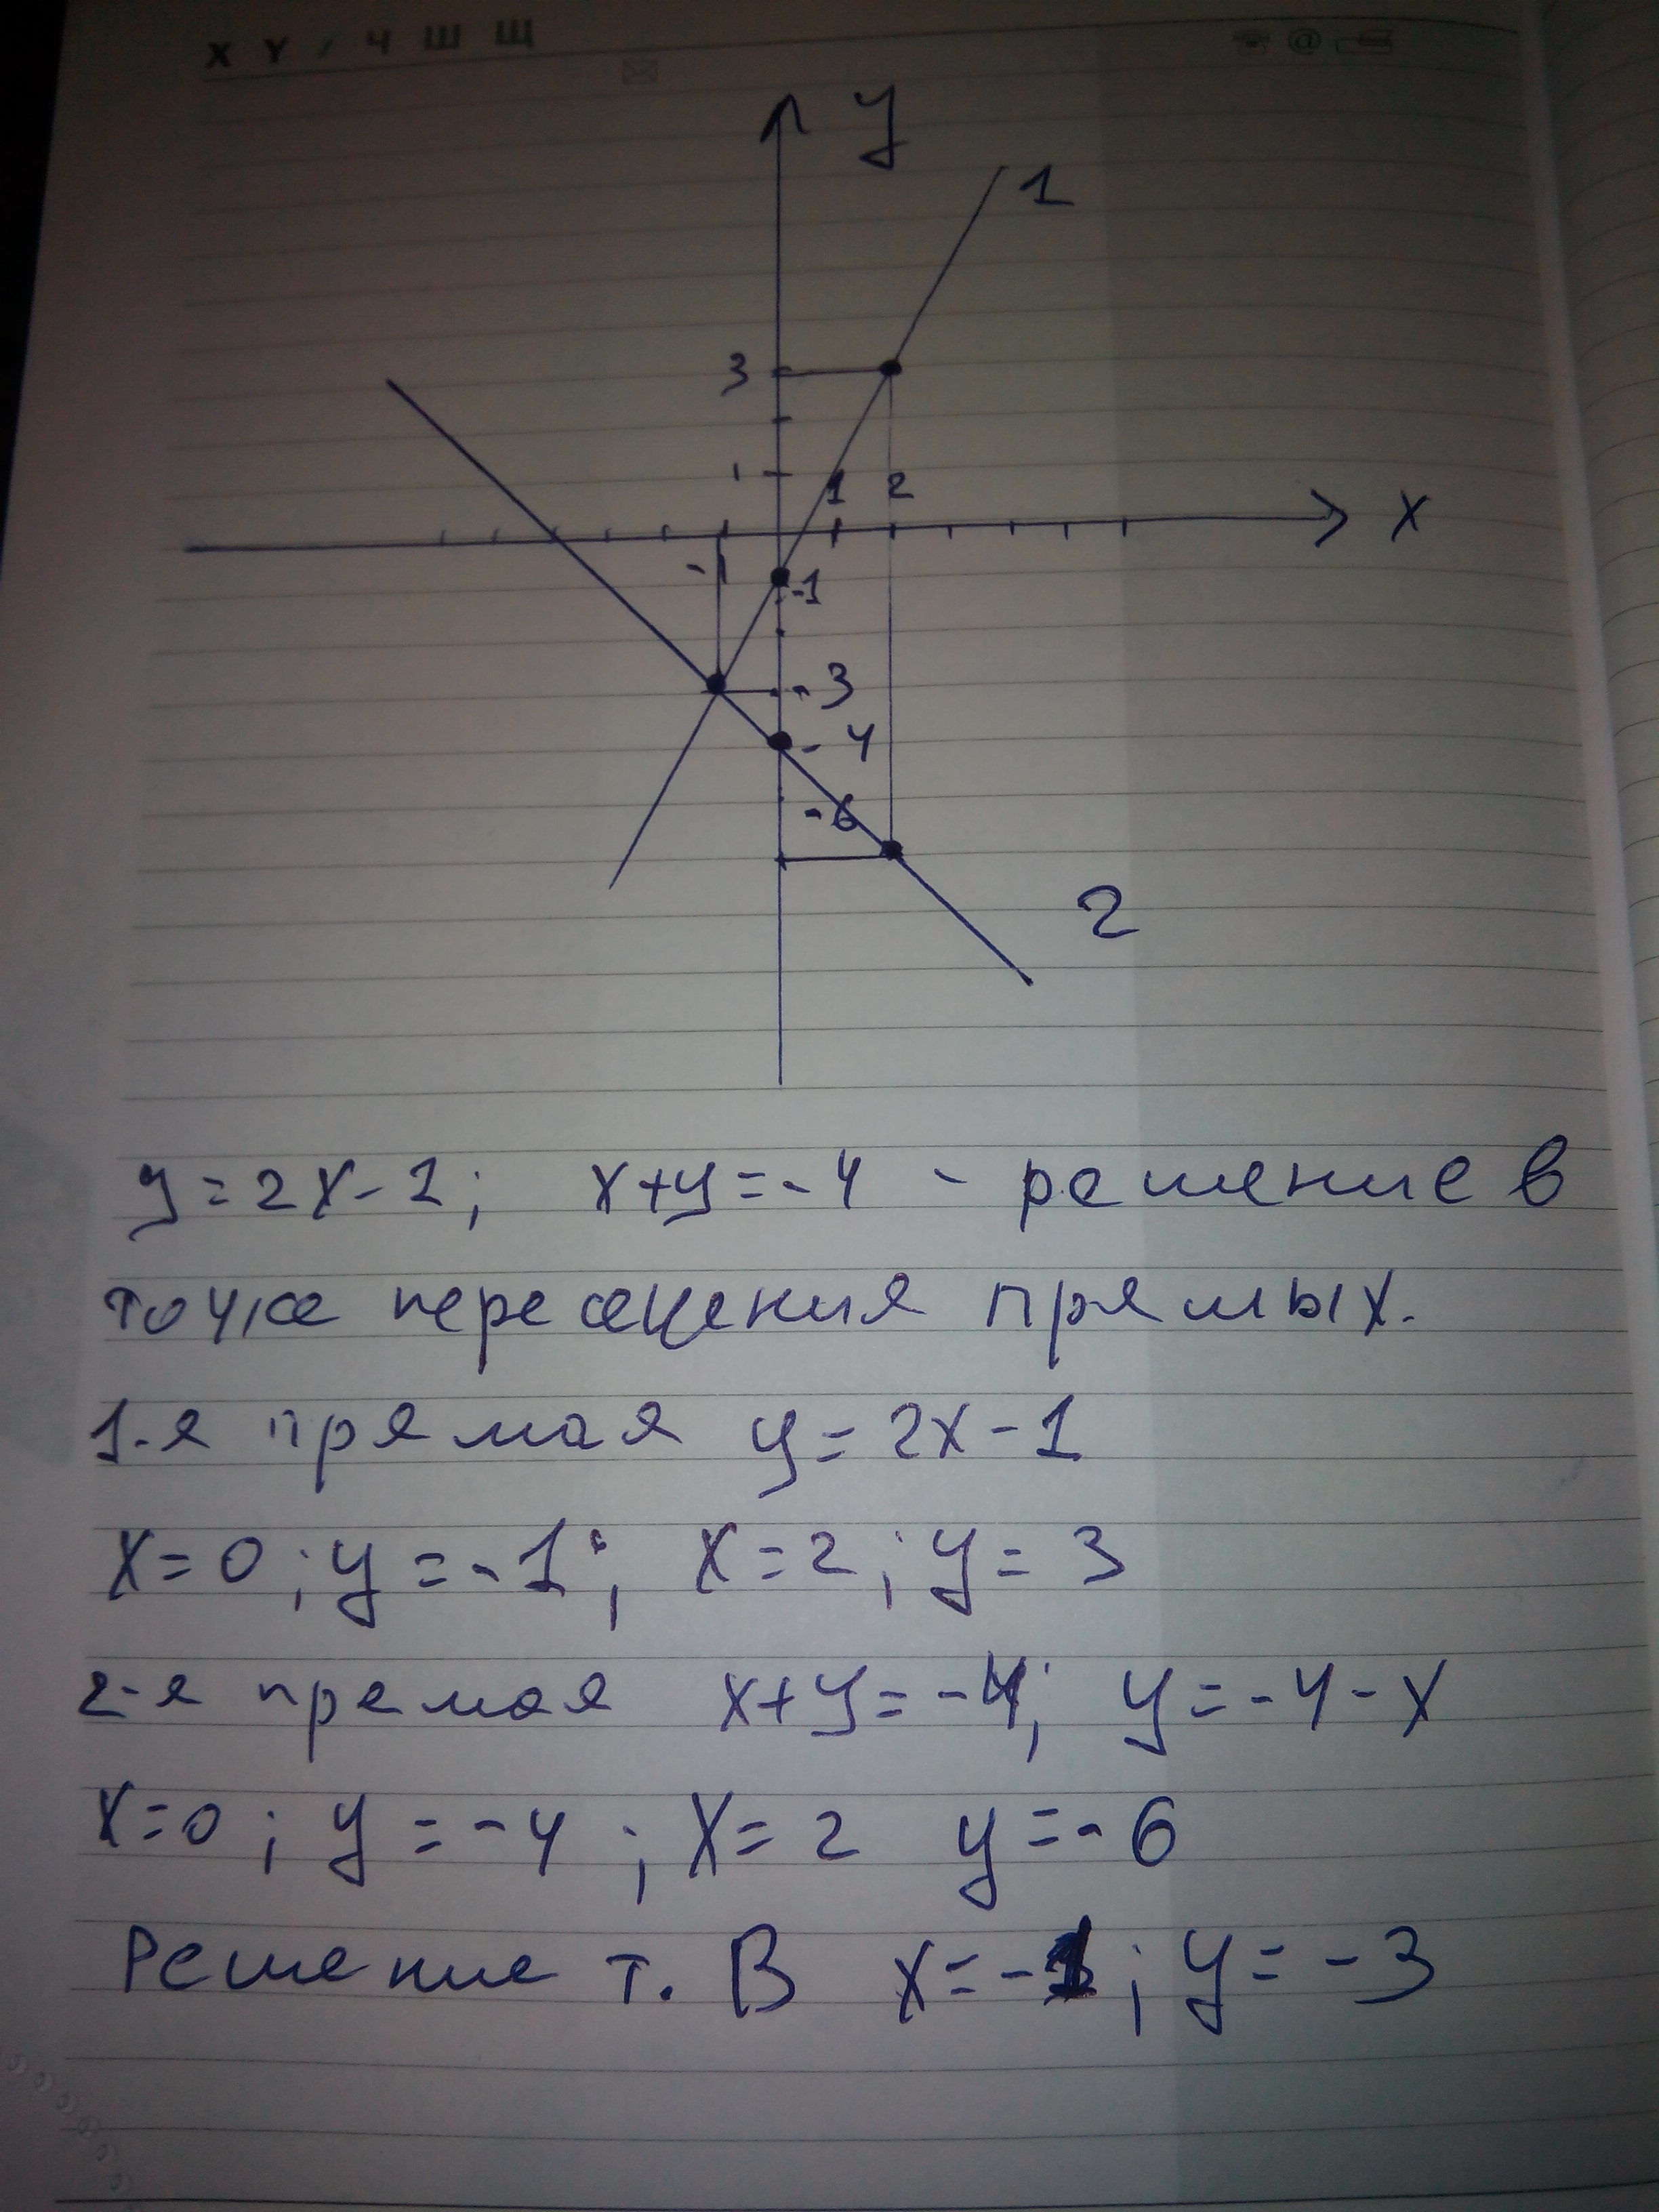 X Y Ч Ш Щ
@
y
1
3
1
1 2
x
-1
-1
-3
-4
-6
2
y=2x-1; x+y=-4 - решение в
точке пересецения прямых.
1-я прямая y=2x-1
x=0; y=-1; x=2; y=3
2-я прямая x+y=-4; y=-4-x
x=0; y=-4; x=2 y=-6
Решение т. В x=-1; y=-3